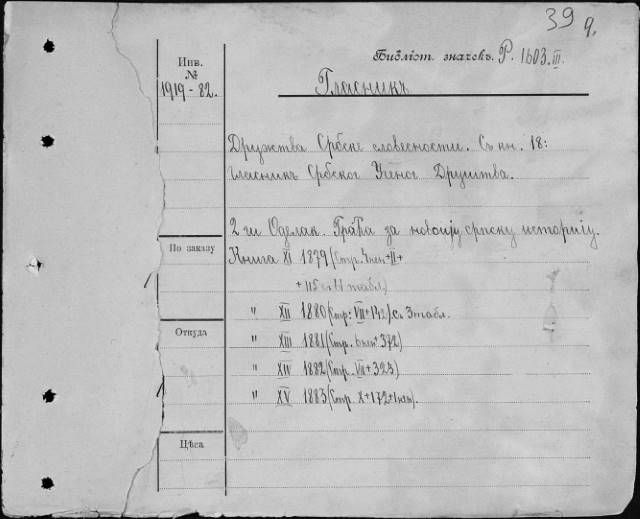 39 9.
Библіот. значекъ. Р. 1603. III.
Инв.
№
1919 - 82.
Гласникъ
Дружства Србске словесности. Съ кн. 18:
гласникъ Србског Ученог Друштва.
2 ги Оделак. Грађа за новоију српску историју.
По заказу
Книга XI 1879 (Стр. 4 нен + II +
+ 115 съ 11 табл.)
" XII 1880 (Стр: VII + 142) съ 3 табл.
Откуда
" XIII 1881 (Стр. 6 нен + 372)
" XIV 1882 (Стр. VII + 323)
" XV 1883 (Стр. X + 172 + 1 нен).
Цѣна